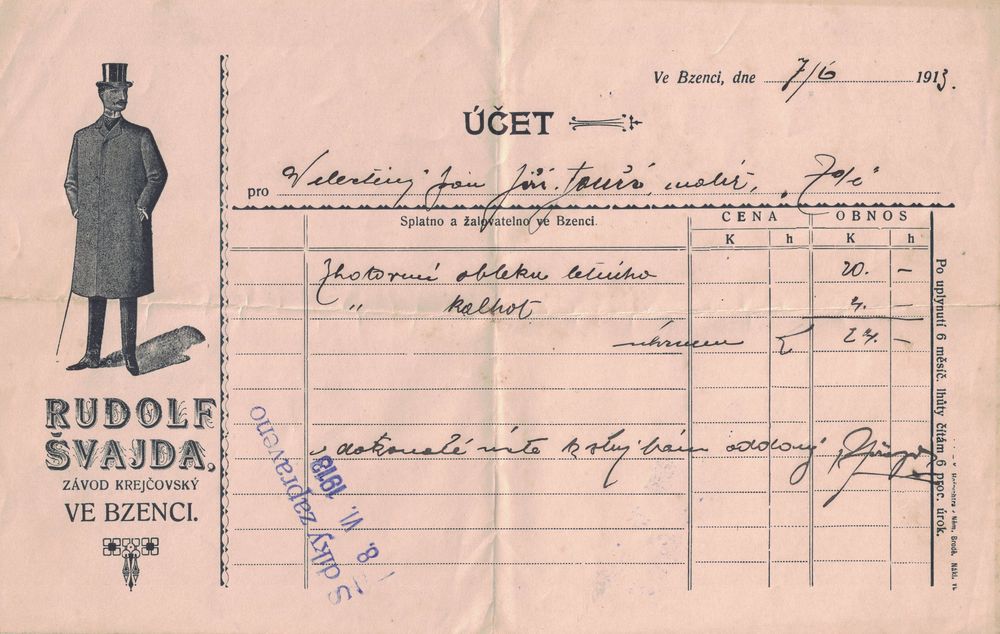 Ve Bzenci, dne 7/6 1913.
ÚČET
pro Velectěný pan Jiří
Splatno a žalovatelno ve Bzenci.
CENA OBNOS
K h K h
Zhotovení obleku letního 20. —
„ kalhot 4. —
úhrnem K 24. —
v dokonalé úctě oddaný
RUDOLF
ŠVAJDA,
ZÁVOD KREJČOVSKÝ
VE BZENCI.
S díky zapraveno
8. VI. 1913
Po uplynutí 6 měsíč. lhůty čítám 6 proc. úrok.